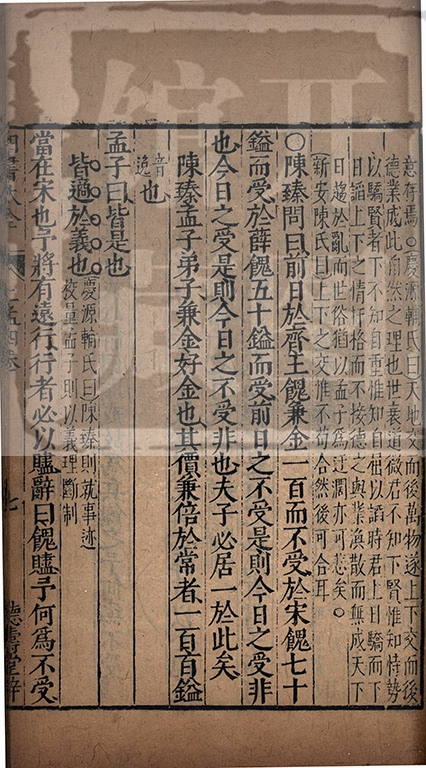 意存焉○慶源輔氏曰天地交而後萬物遂上下交而後
德業成此自然之理也世衰道微君不知下賢惟知恃勢
以驕賢者下不知自重惟知自屈以謟時君上日驕而下
日謟上下之情扞格而不接德之與業渙散而無成天下
日趨於亂而世俗猶以孟子爲迂濶亦可悲矣○
新安陳氏曰上下之交惟不苟合然後可合耳
○陳臻問曰前日於齊王餽兼金一百而不受於宋餽七十
鎰而受於薛餽五十鎰而受前日之不受是則今日之受非
也今日之受是則今日之不受非也夫子必居一於此矣
陳臻孟子弟子兼金好金也其價兼倍於常者一百百鎰
音逸也
孟子曰皆是也
皆適於義也慶源輔氏曰陳臻則就事迹
校量孟子則以義理斷制
當在宋也予將有遠行行者必以贐辭曰餽贐予何爲不受
四書大全
孟四卷
七
德壽堂梓